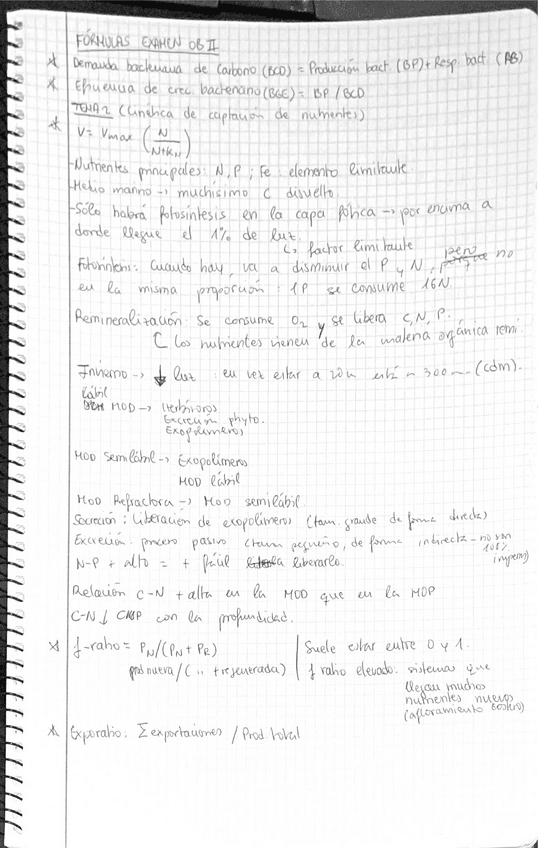 FÓRMULAS EXAMEN OB II
* Demanda bacteriana de Carbono (BCD) = Producción bact (BP) + Resp. bact (RB)
* Eficiencia de crec. bacteriano (BGE) = BP / BCD
TEMA 2 (Cinética de captación de nutrientes)
* V = Vmax (N / N+KN)
-Nutrientes principales: N, P ; Fe: elemento limitante
-Medio marino → muchísimo C disuelto.
-Sólo habrá fotosíntesis en la capa fótica → por encima a
donde llegue el 1% de luz.
↳ factor limitante
Fotosíntesis: Cuando hay, va a disminuir el P y N, pero no
en la misma proporción: 1P se consume 16N
Remineralización: Se consume O2 y se libera C, N, P.
Los nutrientes vienen de la materia orgánica remi.
Invierno → ↓ luz: en vez estar a 20m está a 300m (CDM).
lábil
MOD → Herbívoros
Excreción phyto.
Exopolímeros
MOD Semilábil → Exopolímeros
MOD lábil
MOD Refractora → MOD semilábil
Secreción: liberación de exopolímeros (tam. grande de forma directa)
Excreción: proceso pasivo (tam pequeño, de forma indirecta - no son
N-P + alto = + fácil liberarlo.
Relación C-N + alta en la MOD que en la MOP
C-N ↓ con la profundidad.
* f-ratio = PN/(PN + PR)
prod nueva/( " + regenerada)
Suele estar entre 0 y 1.
f ratio elevado: sistemas que
llegan muchos
nutrientes nuevos
(afloramiento costero)
* Exporatio: Σ exportaciones / Prod total